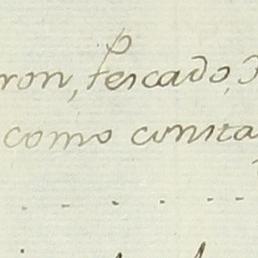 ron, Pescado,
como consta